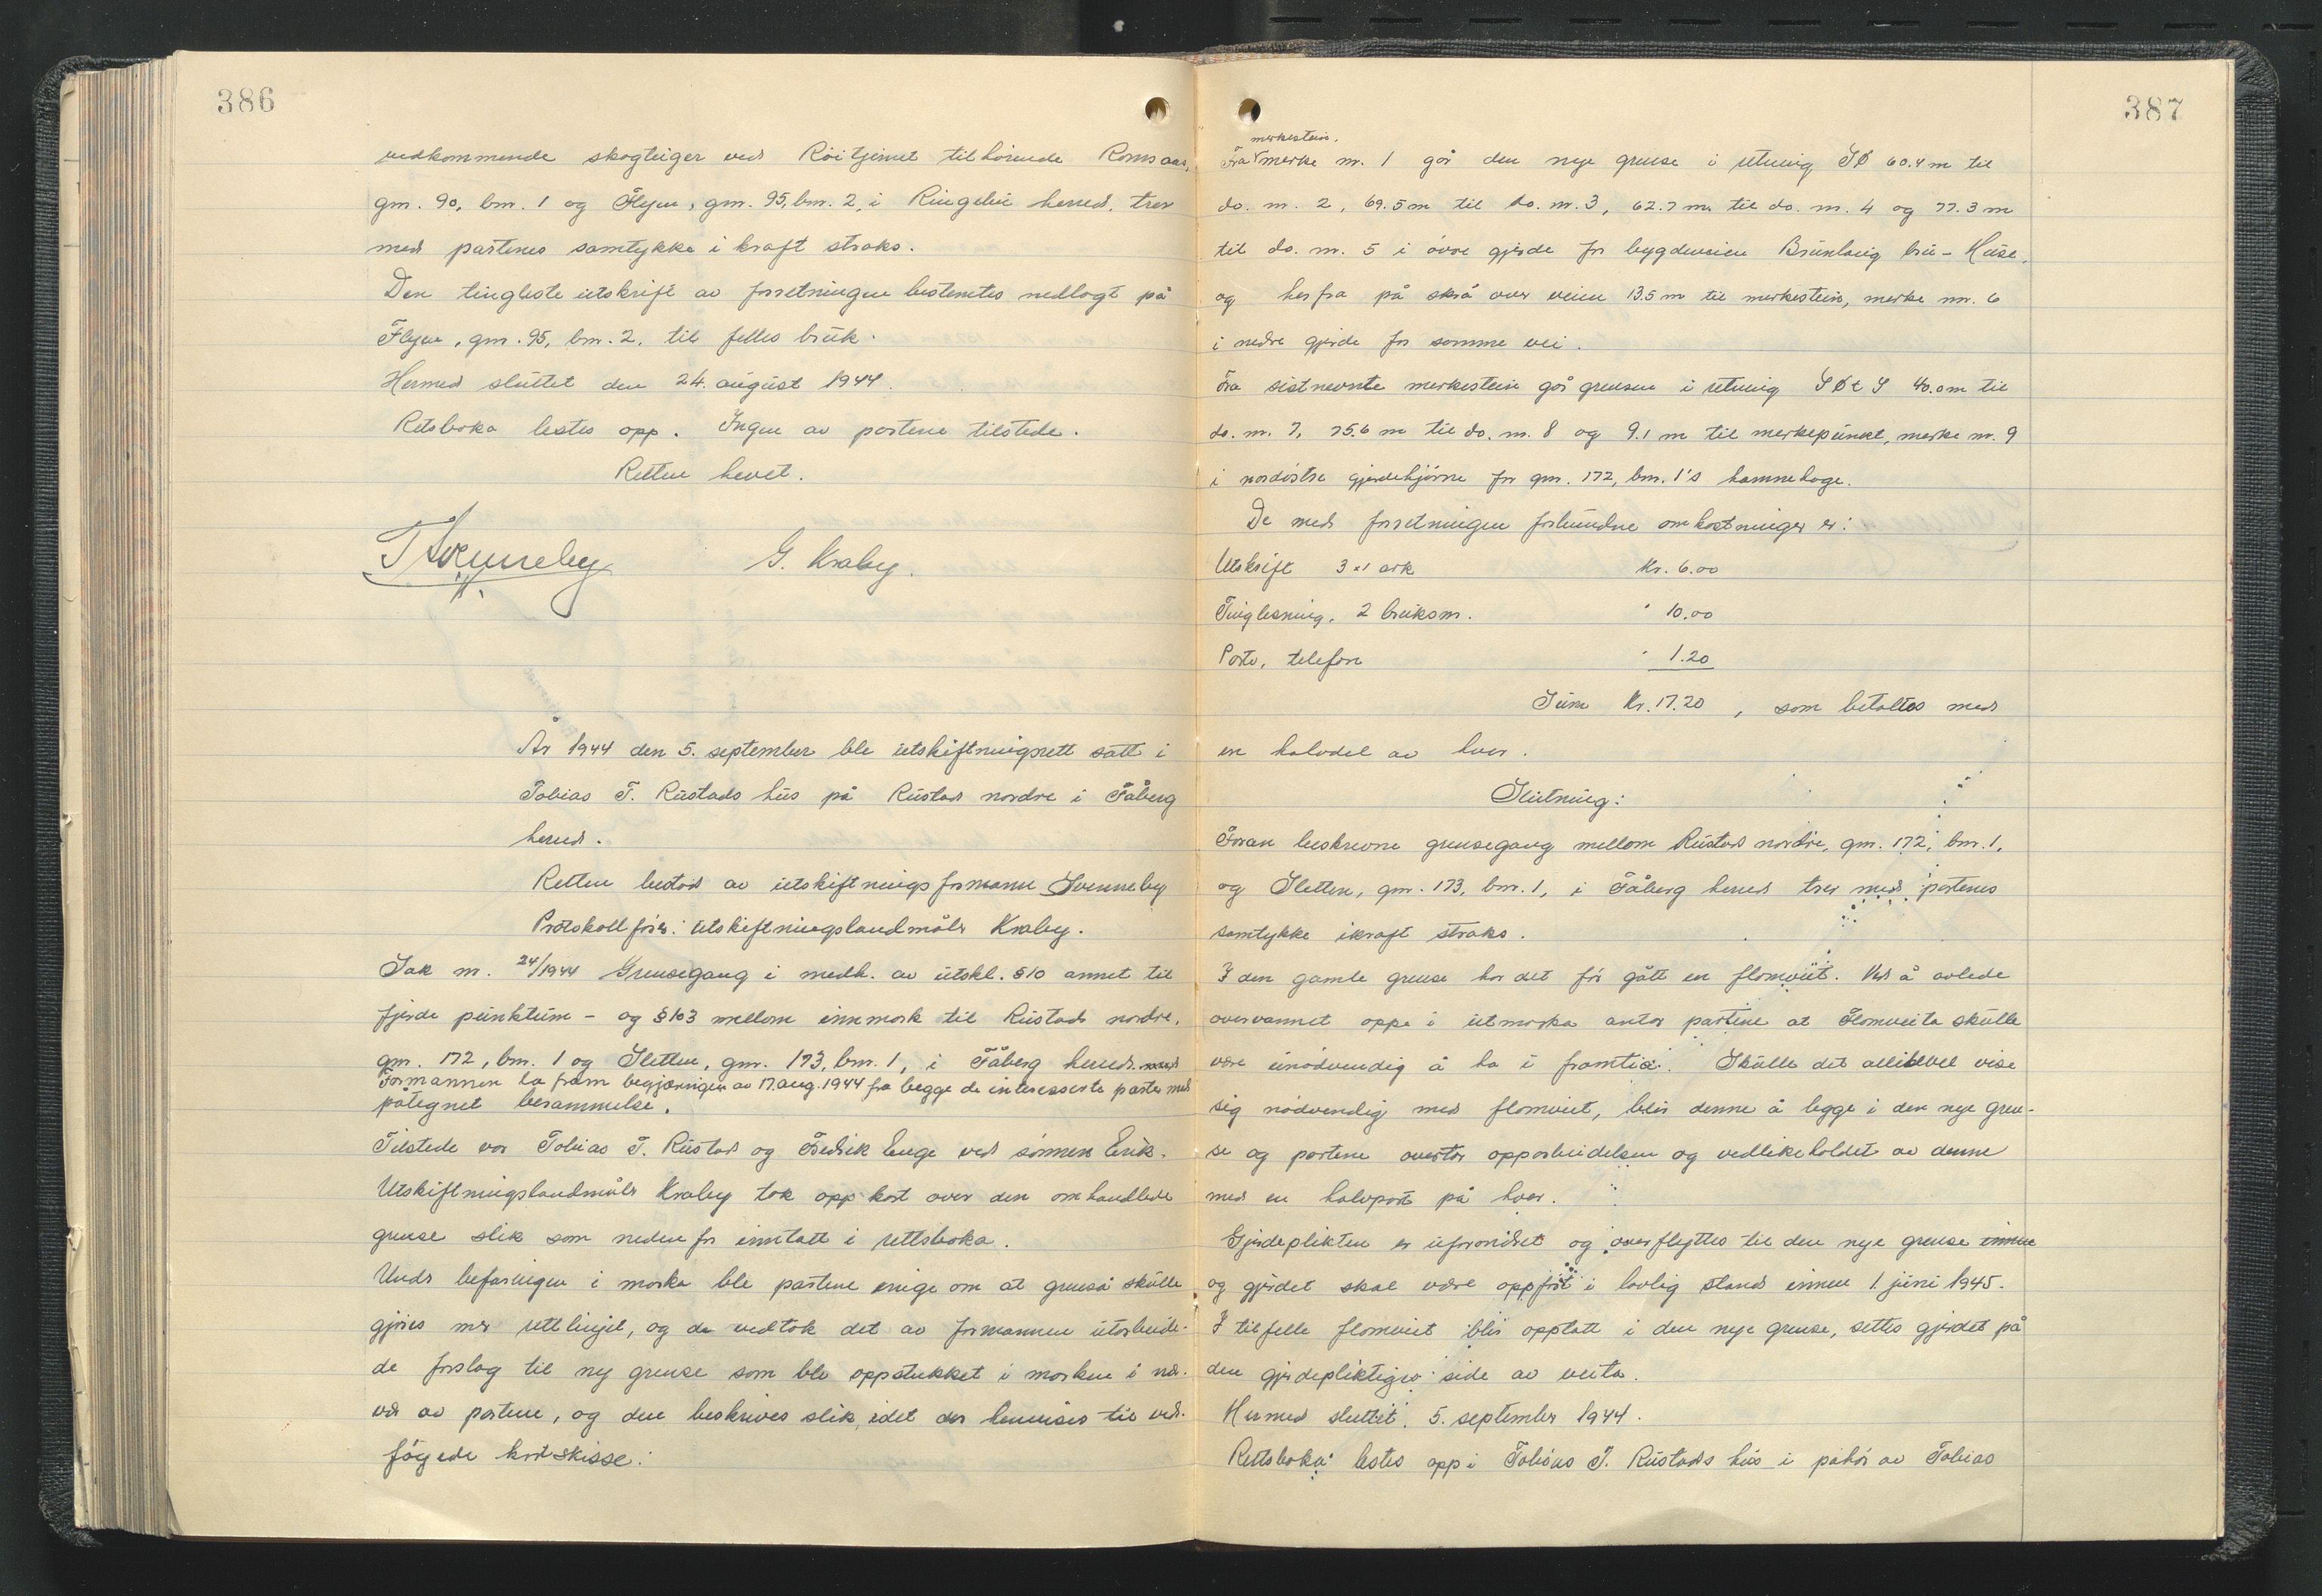 386
vedkommende skogteiger ved Röitjernet tilhörende Romsaas,
gnr. 90, bnr. 1 og Flyen, gnr. 95, bnr. 2, i Ringebu herred, trer
med partenes samtykke i kraft straks.
Den tingleste utskrift av forretningen bestemtes nedlagt på
Flyen, gnr. 95, bnr. 2, til felles bruk.
Hermed sluttet den 24. august 1944.
Retsboka lestes opp. Ingen av partene tilstede.
Retten hevet.
T Svenneby G. Kraby.
År 1944 den 5. september ble utskiftningsrett satt i
Tobias T. Rustads hus på Rustad nordre i Fåberg
herred.
Retten bestod av utskiftningsformann Svenneby
Protokollförer: utskiftningslandmåler Kraby.
Sak nr. 24/1944 Grensegang i medh. av utskl. § 10 annet til
fjerde punktum – og § 103 mellom innmark til Rustad nordre,
gnr. 172, bnr. 1 og Sletten, gnr. 173, bnr. 1, i Fåberg herred.
Formannen la fram begjæringen av 17. aug. 1944 fra begge de interesserte parter med
påtegnet berammelse.
Tilstede var Tobias T. Rustad og Fredrik Enge ved sönnen Erik.
Utskiftningslandmåler Kraby tok opp kart over den omhandlede
grense slik som nedenfor inntatt i rettsboka.
Under befaringen i marka ble partene enige om at grensa skulle
gjöres mer rettlinjet, og de vedtok det av formannen utarbeide-
de forslag til ny grense som ble oppstukket i marken i nær-
vær av partene, og den beskrives slik, idet der henvises til ved-
föyede kartskisse:
387
merkestein,
Fra merke nr. 1 går den nye grense i retning SØ 60.4 m til
do. nr. 2, 69.5 m til do. nr. 3, 62.7 m til do. nr. 4 og 77.3 m
til do. nr. 5 i övre gjerde for bygdeveien Brunlaug bru – Huse,
og herfra på skrå over veien 13.5 m til merkestein, merke nr. 6
i nedre gjerde for samme vei.
Fra sistnevnte merkestein går grensen i retning SØtS 40.0 m til
do. nr. 7, 75.6 m til do. nr. 8 og 9.1 m til merkepunkt, merke nr. 9
i nordöstre gjerdehjörne for gnr. 172, bnr. 1's hamnehage.
De med forretningen forbundne omkostninger er:
Utskrift 3 x 1 ark Kr. 6.00
Tinglesning, 2 bruksnr. " 10.00
Porto, telefon " 1.20
Sum Kr. 17.20, som betaltes med
en halvdel av hver.
Slutning:
Foran beskrevne grensegang mellom Rustad nordre, gnr. 172, bnr. 1,
og Sletten, gnr. 173, bnr. 1, i Fåberg herred trer med partenes
samtykke ikraft straks.
I den gamle grense har det för gått en flomveit. Ved å avlede
overvannet oppe i utmarka antar partene at flomveita skulle
være unödvendig å ha i framtida. Skulle det allikevel vise
sig nödvendig med flomveit, blir denne å legge i den nye gren-
se og partene overtar opparbeidelsen og vedlikeholdet av denne
med en halvpart på hver.
Gjerdeplikten er uforandret og overflyttes til den nye grense innen
og gjerdet skal være oppfört i lovlig stand innen 1. juni 1945.
I tilfelle flomveit blir opptatt i den nye grense, settes gjerdet på
den gjerdepliktiges side av veita.
Hermed sluttet. 5. september 1944.
Rettsboka lestes opp i Tobias T. Rustads hus i påhör av Tobias